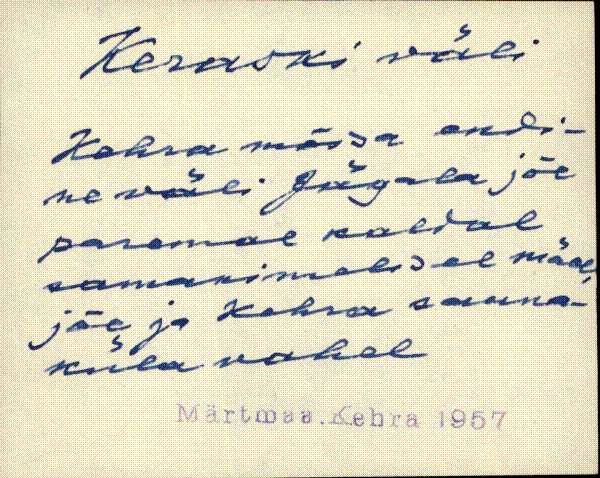 Keraski väli
Kehra mõisa endi-
ne väli Jägala jõe
paremal kaldal
samanimelisel mäel,
jõe ja Kehra sauna-
küla vahel
Märtmaa.Kehra 1957